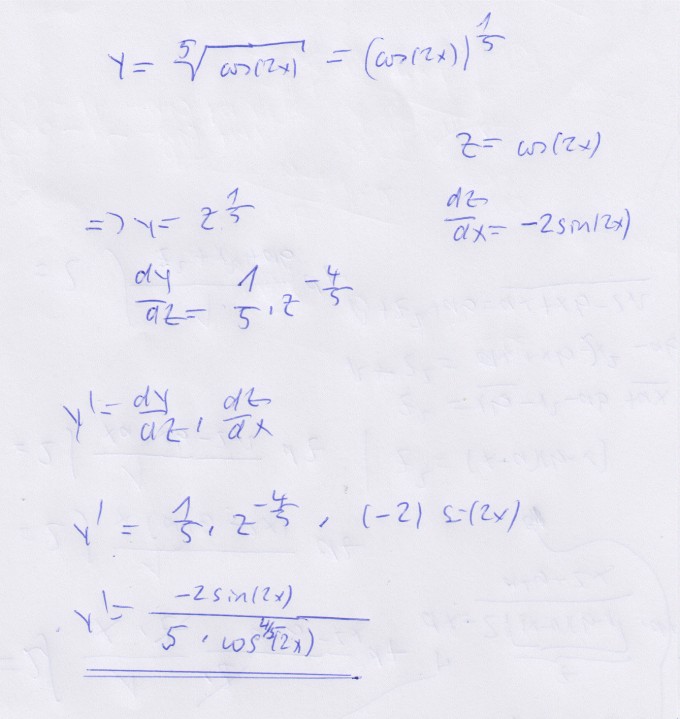 y = ⁵√cos(2x) = (cos(2x))^(1/5)
z = cos(2x)
=> y = z^(1/5)
dz/dx = -2sin(2x)
dy/dz = 1/5 · z^(-4/5)
y' = dy/dz · dz/dx
y' = 1/5 · z^(-4/5) · (-2) sin(2x)
y' = -2sin(2x) / 5 · cos^(4/5)(2x)